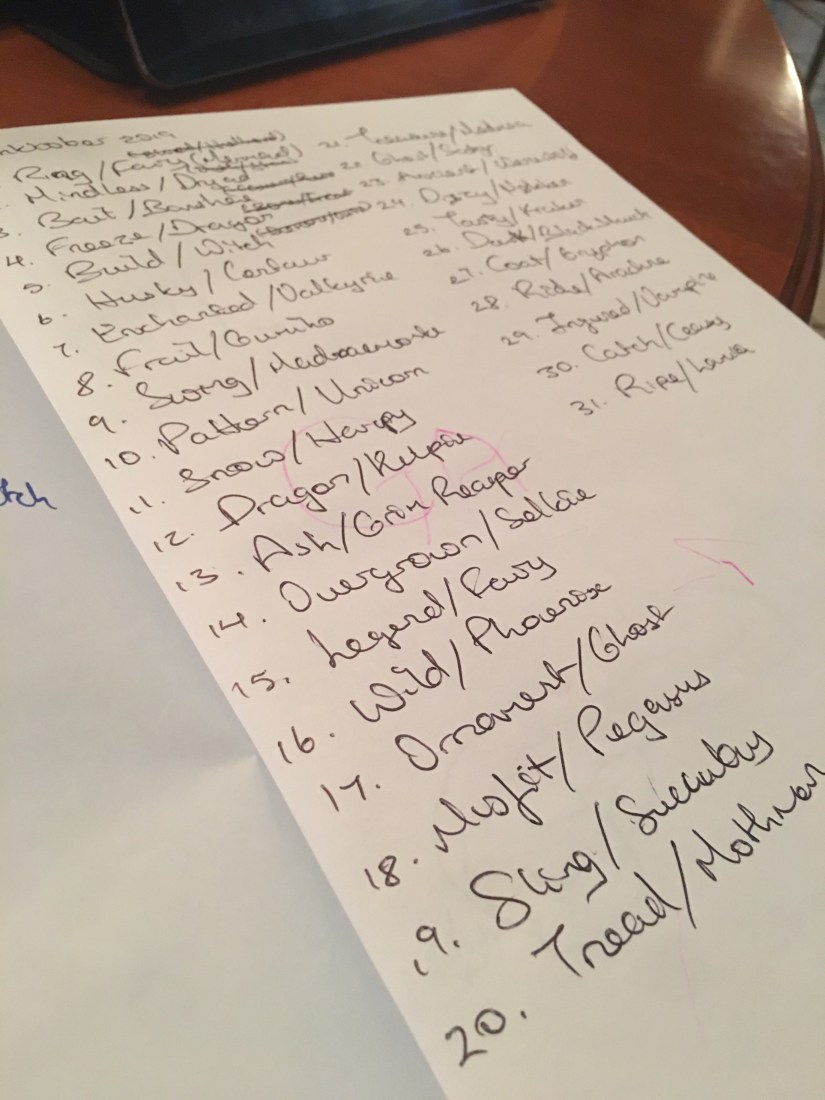 nktober 2019
Ring/Fairy (Mermaid)
Mindless/Dryad
3. Bait/Banshee
4. Freeze/Dragon
5. Build/Witch
6. Husky/Centaur
7. Enchanted/Valkyrie
8. Frail/
9. Swing/
10. Pattern/Unicorn
11. Snow/Harpy
12. Dragon/Kelpie
13. Ash/Grim Reaper
14. Overgrown/Selkie
15. Legend/Fairy
16. Wild/Phoenix
17. Ornament/Ghost
18. Misfit/Pegasus
19. Sling/Succubus
20. Tread/Mothman
21. Treasure/Medusa
22. Ghost/
23. Ancient/Werewolf
24. Dizzy/
25. Tasty/Kraken
26. Dark/
27. Coat/Gryphon
28. Ride/Arachne
29. Injured/Vampire
30. Catch/
31. Ripe/Lamia
tch